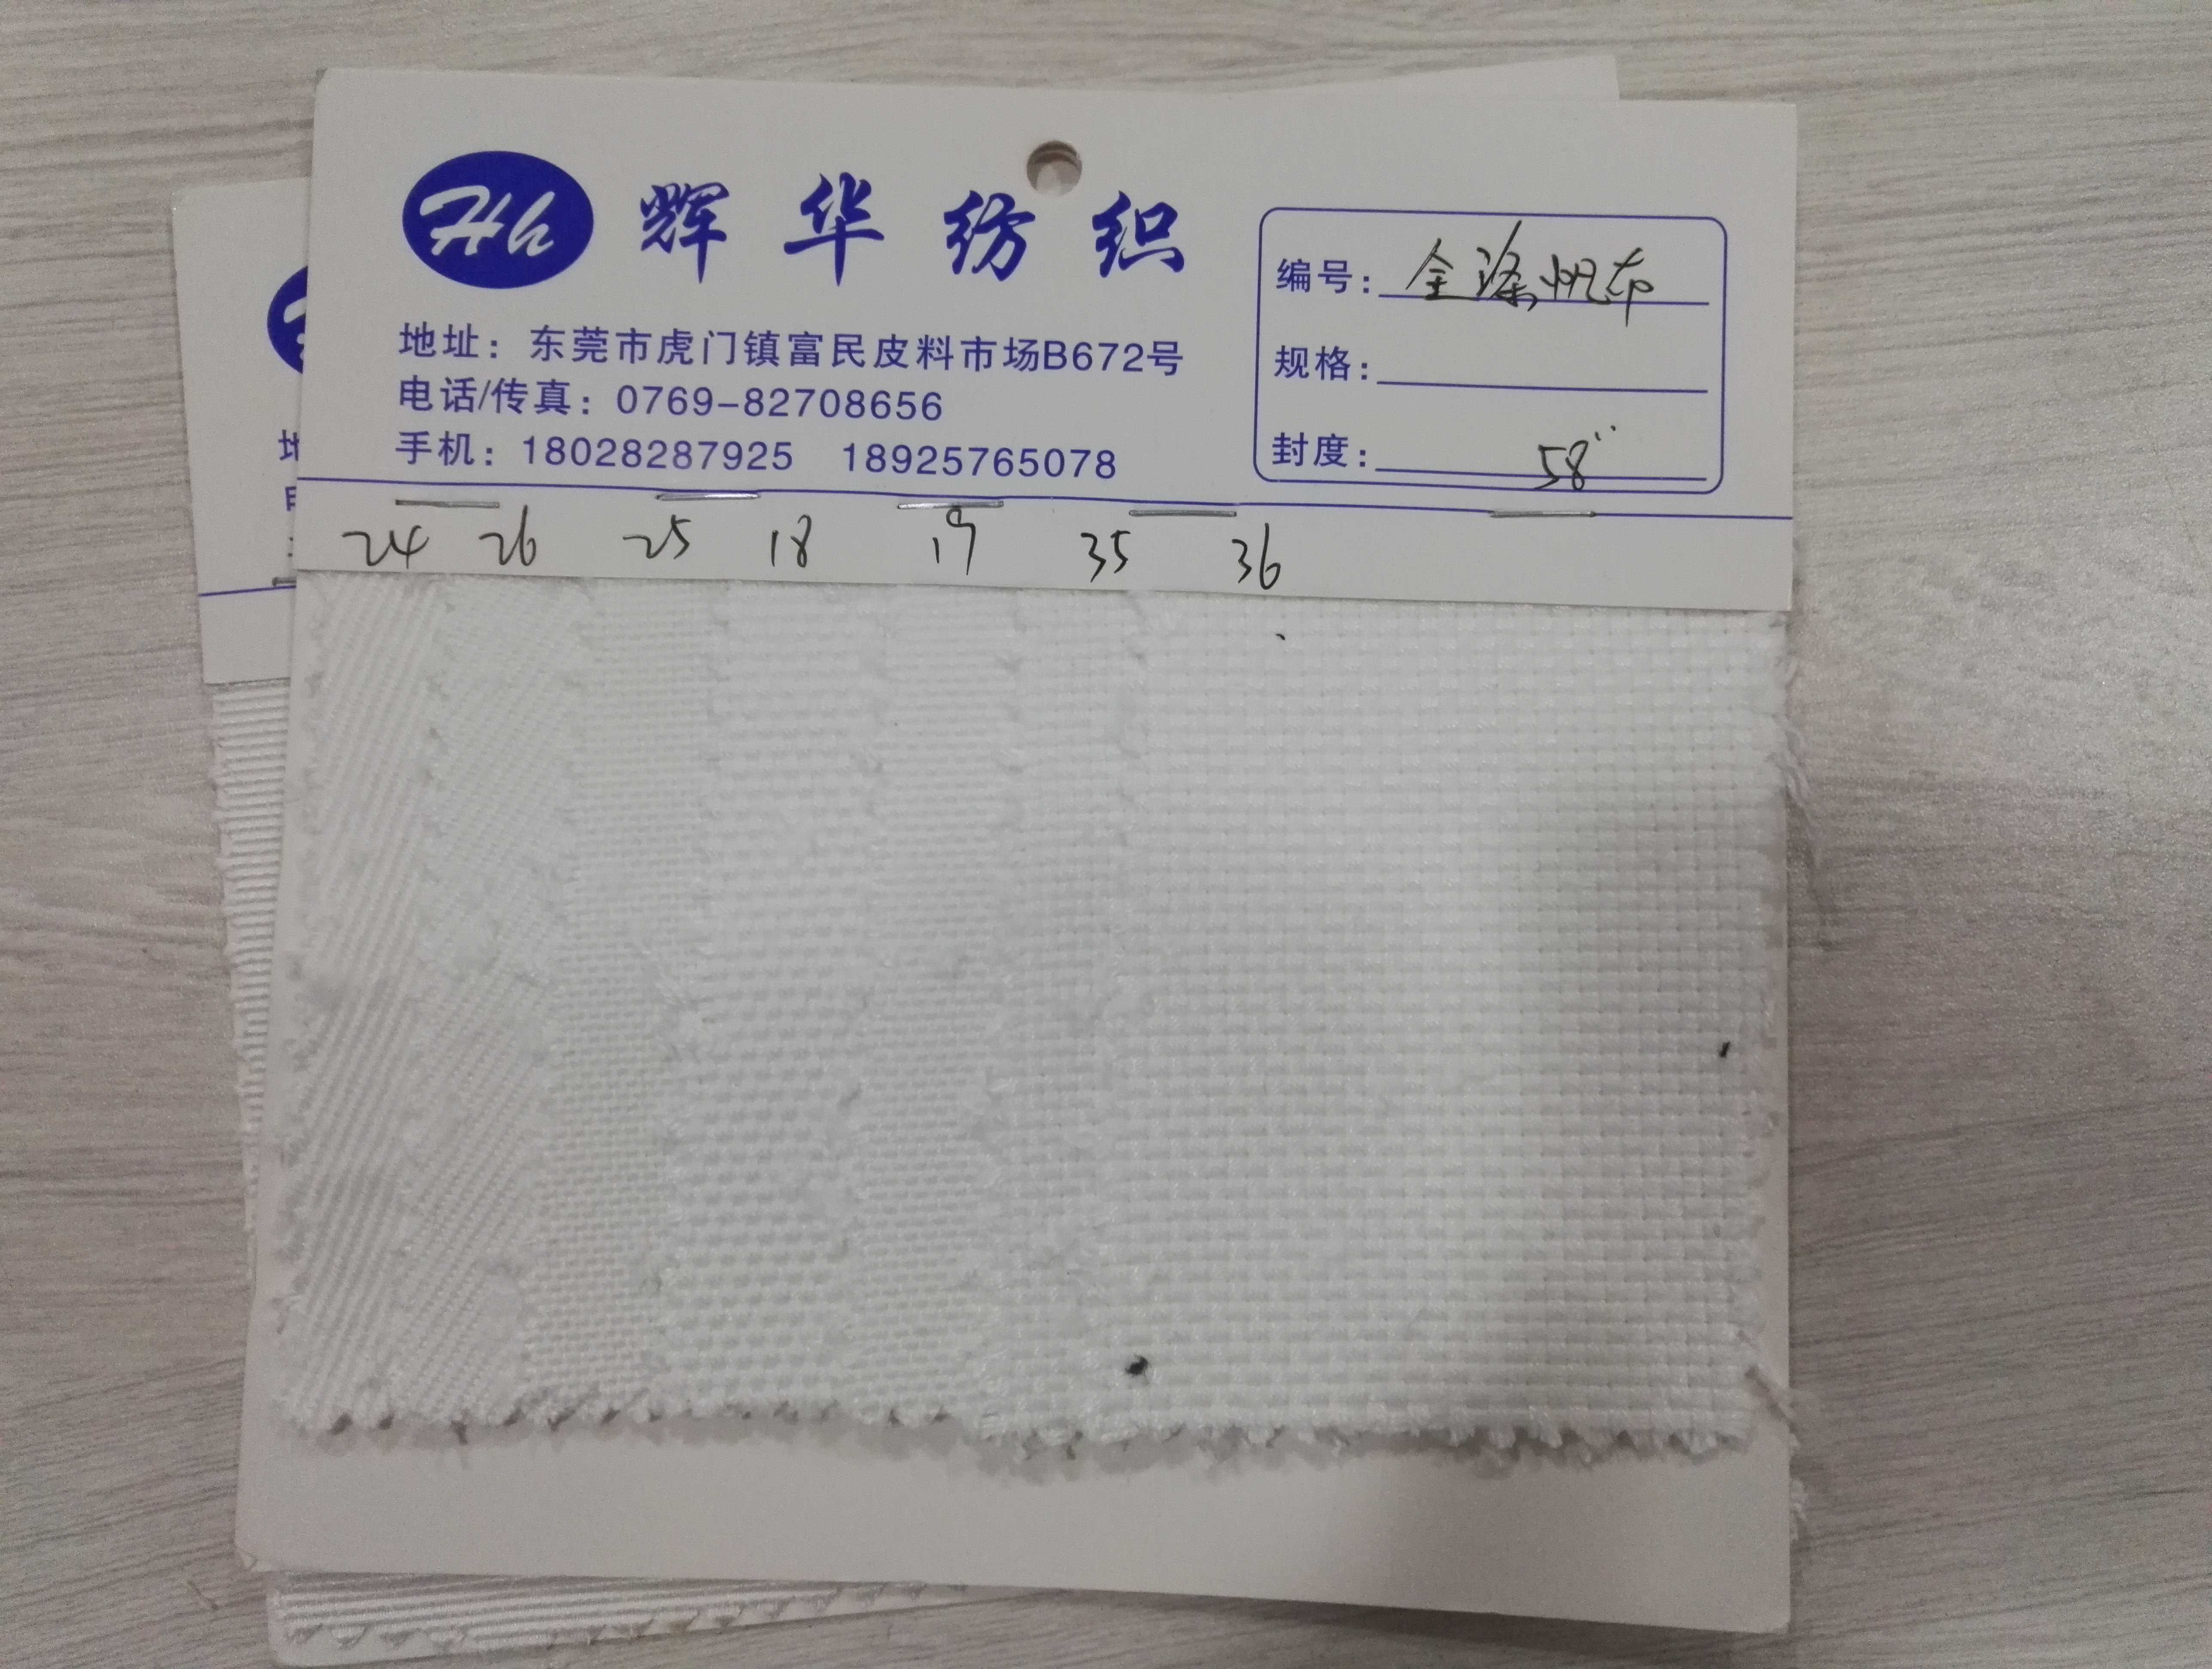 Hh 辉华纺织
地址：东莞市虎门镇富民皮料市场B672号
电话/传真：0769-82708656
手机：18028287925 18925765078
编号：全涤帆布
规格：
封度：58"
24 26 25 18 19 35 36
地